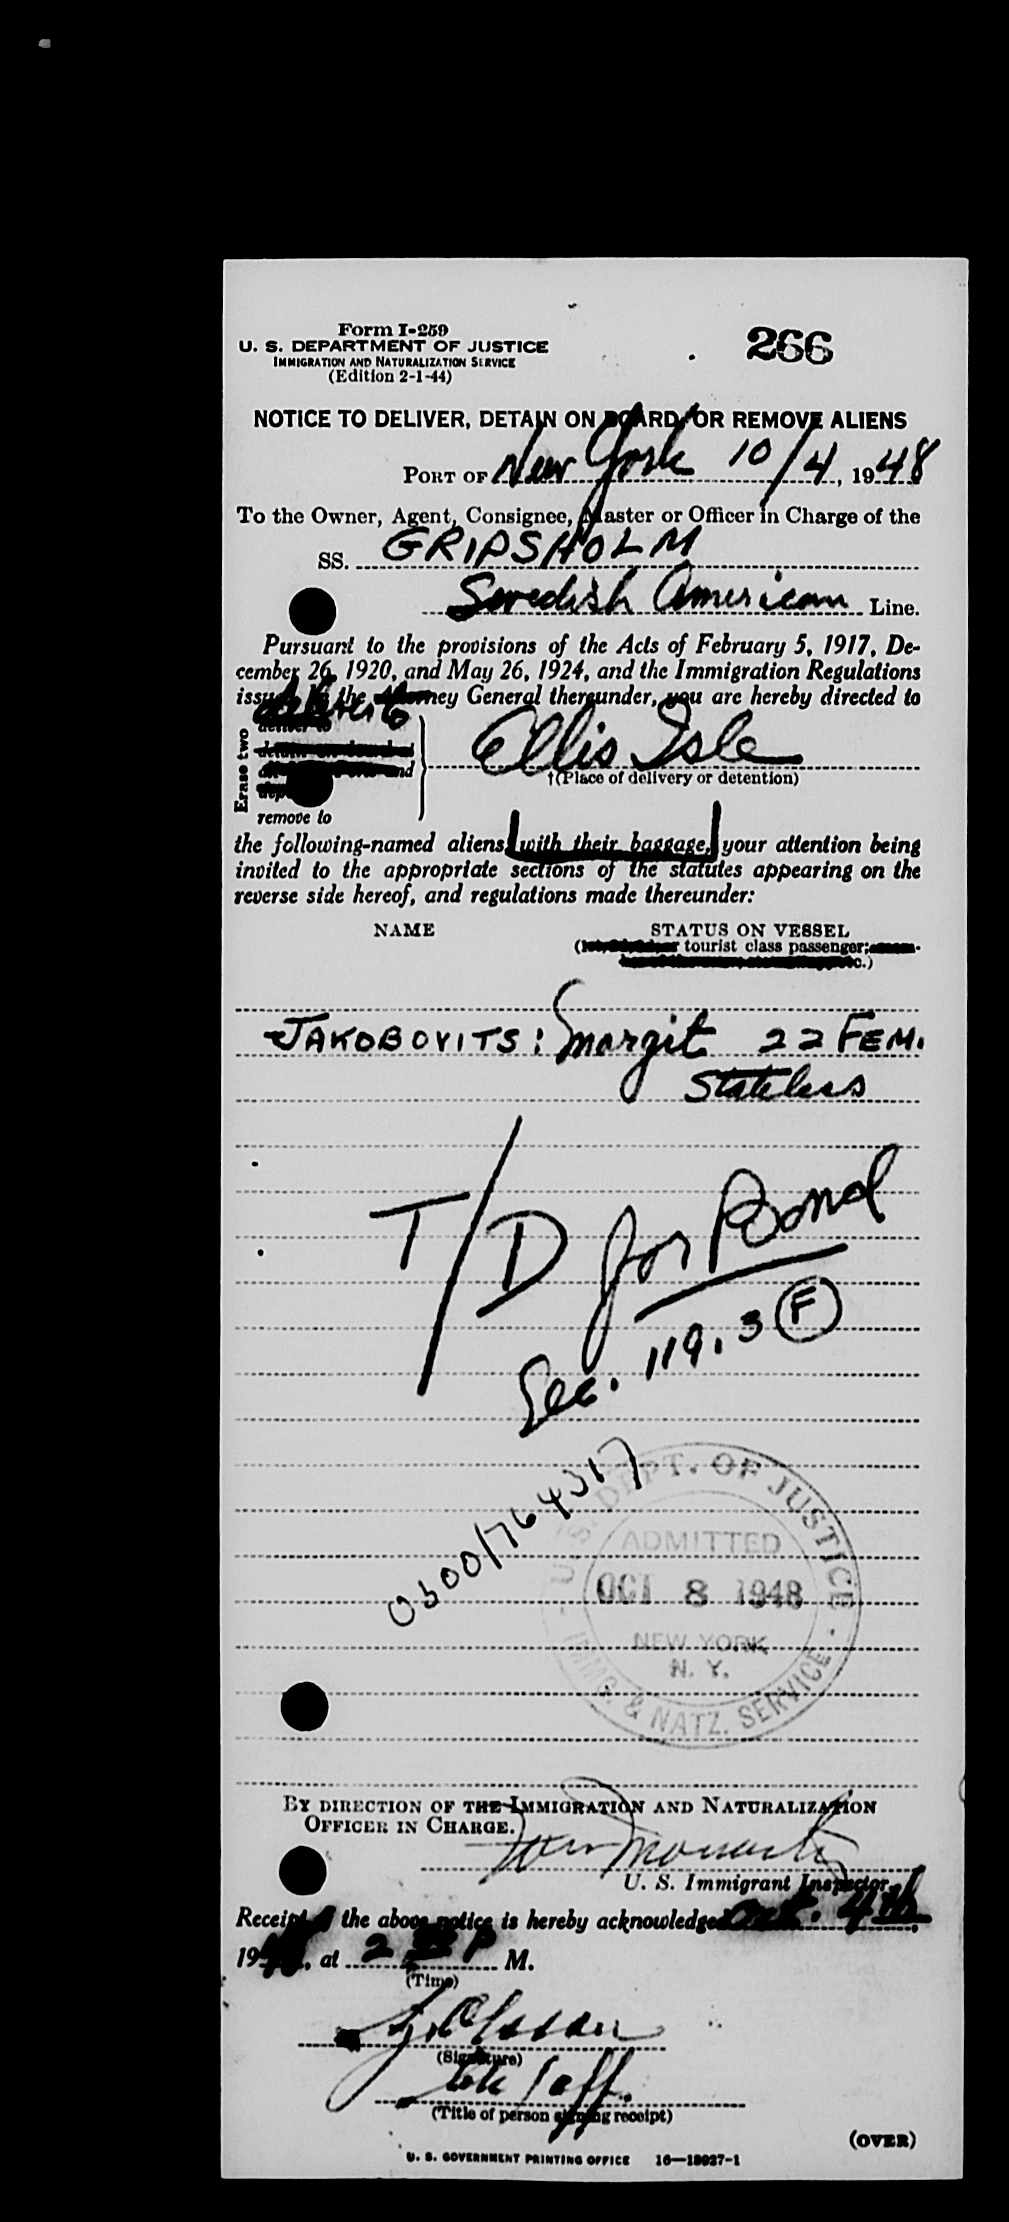 Form I-259
U. S. DEPARTMENT OF JUSTICE
IMMIGRATION AND NATURALIZATION SERVICE
(Edition 2-1-44)
266
NOTICE TO DELIVER, DETAIN ON BOARD, OR REMOVE ALIENS
PORT OF New York 10/4, 1948
To the Owner, Agent, Consignee, Master or Officer in Charge of the
SS. GRIPSHOLM
Swedish American Line.
Pursuant to the provisions of the Acts of February 5, 1917, De-
cember 26, 1920, and May 26, 1924, and the Immigration Regulations
issued by the Attorney General thereunder, you are hereby directed to
Erase two
deliver to
deliver to
Ellis Isle
†(Place of delivery or detention)
remove to
the following-named aliens, with their baggage, your attention being
invited to the appropriate sections of the statutes appearing on the
reverse side hereof, and regulations made thereunder:
NAME
STATUS ON VESSEL
tourist class passenger;
JAKOBOVITS: Margit 22 FEM.
Stateless
T/D for Bond
Sec. 119.3 (F)
0300/764317
U.S. DEPT. OF JUSTICE
ADMITTED
OCT 8 1948
NEW YORK
N. Y.
IMMG. & NATZ. SERVICE
BY DIRECTION OF THE IMMIGRATION AND NATURALIZATION
OFFICER IN CHARGE.
U. S. Immigrant Inspector.
Receipt of the above notice is hereby acknowledged Oct. 4th,
1948, at 2 P M.
(Time)
(Signature)
(Title of person signing receipt)
(OVER)
U. S. GOVERNMENT PRINTING OFFICE 16—18927-1